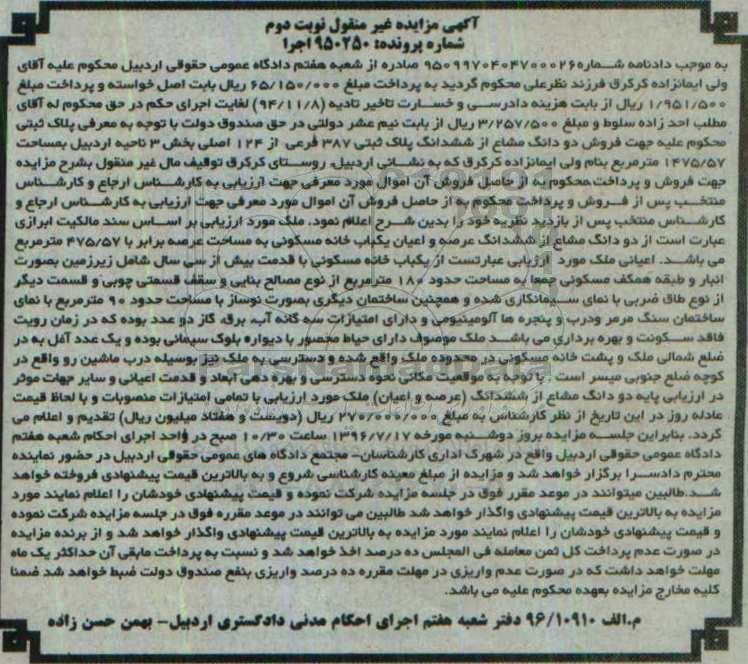 آگهی مزایده غیر منقول نوبت دوم
شماره پرونده: ۹۵۰۲۵۰ اجرا
به موجب دادنامه شماره۹۵۰۹۹۷۰۴۰۴۷۰۰۰۲۶ صادره از شعبه هفتم دادگاه عمومی حقوقی اردبیل محکوم علیه آقای
ولی ایمانزاده کرکرق فرزند نظرعلی محکوم گردید به پرداخت مبلغ ۶۵/۱۵۰/۰۰۰ ریال بابت اصل خواسته و پرداخت مبلغ
۱/۹۵۱/۵۰۰ ریال از بابت هزینه دادرسی و خسارت تاخیر تادیه (۹۴/۱۱/۸) لغایت اجرای حکم در حق محکوم له آقای
مطلب احد زاده سلوط و مبلغ ۳/۲۵۷/۵۰۰ ریال از بابت نیم عشر دولتی در حق صندوق دولت با توجه به معرفی پلاک ثبتی
محکوم علیه جهت فروش دو دانگ مشاع از ششدانگ پلاک ثبتی ۳۸۷ فرعی از ۱۲۴ اصلی بخش ۳ ناحیه اردبیل بمساحت
۱۴۷۵/۵۷ مترمربع بنام ولی ایمانزاده کرکرق که به نشانی اردبیل، روستای کرکرق توقیف مال غیر منقول بشرح مزایده
جهت فروش و پرداخت محکوم به از حاصل فروش آن اموال مورد معرفی جهت ارزیابی به کارشناس ارجاع و کارشناس
منتخب پس از فروش و پرداخت محکوم به از حاصل فروش آن اموال مورد معرفی جهت ارزیابی به کارشناس ارجاع و
کارشناس منتخب پس از بازدید نظریه خود را بدین شرح اعلام نمود. ملک مورد ارزیابی بر اساس سند مالکیت ابرازی
عبارت است از دو دانگ مشاع از ششدانگ عرصه و اعیان یکباب خانه مسکونی به مساحت عرصه برابر با ۴۷۵/۵۷ مترمربع
می باشد. اعیانی ملک مورد ارزیابی عبارتست از یکباب خانه مسکونی با قدمت بیش از سی سال شامل زیرزمین بصورت
انبار و طبقه همکف مسکونی جمعا به مساحت حدود ۱۸۰ مترمربع از نوع مصالح بنایی و سقف قسمتی چوبی و قسمت دیگر
از نوع طاق ضربی با نمای سیمانکاری شده و همچنین ساختمان دیگری بصورت نوساز با مساحت حدود ۹۰ مترمربع با نمای
ساختمان سنگ مرمر ودرب و پنجره ها آلومینیومی و دارای امتیازات سه گانه آب، برق، گاز دو عدد بوده که در زمان رویت
فاقد سکونت و بهره برداری می باشد ملک موصوف دارای حیاط محصور با دیواره بلوک سیمانی بوده و یک عدد آغل به در
ضلع شمالی ملک و پشت خانه مسکونی در محدوده ملک واقع شده و دسترسی به ملک نیز بوسیله درب ماشین رو واقع در
کوچه ضلع جنوبی میسر است - با توجه به موقعیت مکانی نحوه دسترسی و بهره دهی ابعاد و قدمت اعیانی و سایر جهات موثر
در ارزیابی پایه دو دانگ مشاع از ششدانگ (عرصه و اعیان) ملک مورد ارزیابی با تمامی امتیازات منصوبات و با لحاظ قیمت
عادله روز در این تاریخ از نظر کارشناس به مبلغ ۲۷۰/۰۰۰/۰۰۰ ریال (دویست و هفتاد میلیون ریال) تقدیم و اعلام می
گردد. بنابراین جلسه مزایده بروز دوشنبه مورخه ۱۳۹۶/۷/۱۷ ساعت ۱۰/۳۰ صبح در واحد اجرای احکام شعبه هفتم
دادگاه عمومی حقوقی اردبیل واقع در شهرک اداری کارشناسان- مجتمع دادگاه های عمومی حقوقی اردبیل در حضور نماینده
محترم دادسرا برگزار خواهد شد و مزایده از مبلغ معینه کارشناسی شروع و به بالاترین قیمت پیشنهادی فروخته خواهد
شد.طالبین میتوانند در موعد مقرر فوق در جلسه مزایده شرکت نموده و قیمت پیشنهادی خودشان را اعلام نمایند مورد
مزایده به بالاترین قیمت پیشنهادی واگذار خواهد شد طالبین می توانند در موعد مقرره فوق در جلسه مزایده شرکت نموده
و قیمت پیشنهادی خودشان را اعلام نمایند مورد مزایده به بالاترین قیمت پیشنهادی واگذار خواهد شد و از برنده مزایده
در صورت عدم پرداخت کل ثمن معامله فی المجلس ده درصد اخذ خواهد شد و نسبت به پرداخت مابقی آن حداکثر یک ماه
مهلت خواهد داشت که در صورت عدم واریزی در مهلت مقرره ده درصد واریزی بنفع صندوق دولت ضبط خواهد شد ضمنا
کلیه مخارج مزایده بعهده محکوم علیه می باشد.
م.الف ۹۶/۱۰۹۱۰ دفتر شعبه هفتم اجرای احکام مدنی دادگستری اردبیل- بهمن حسن زاده